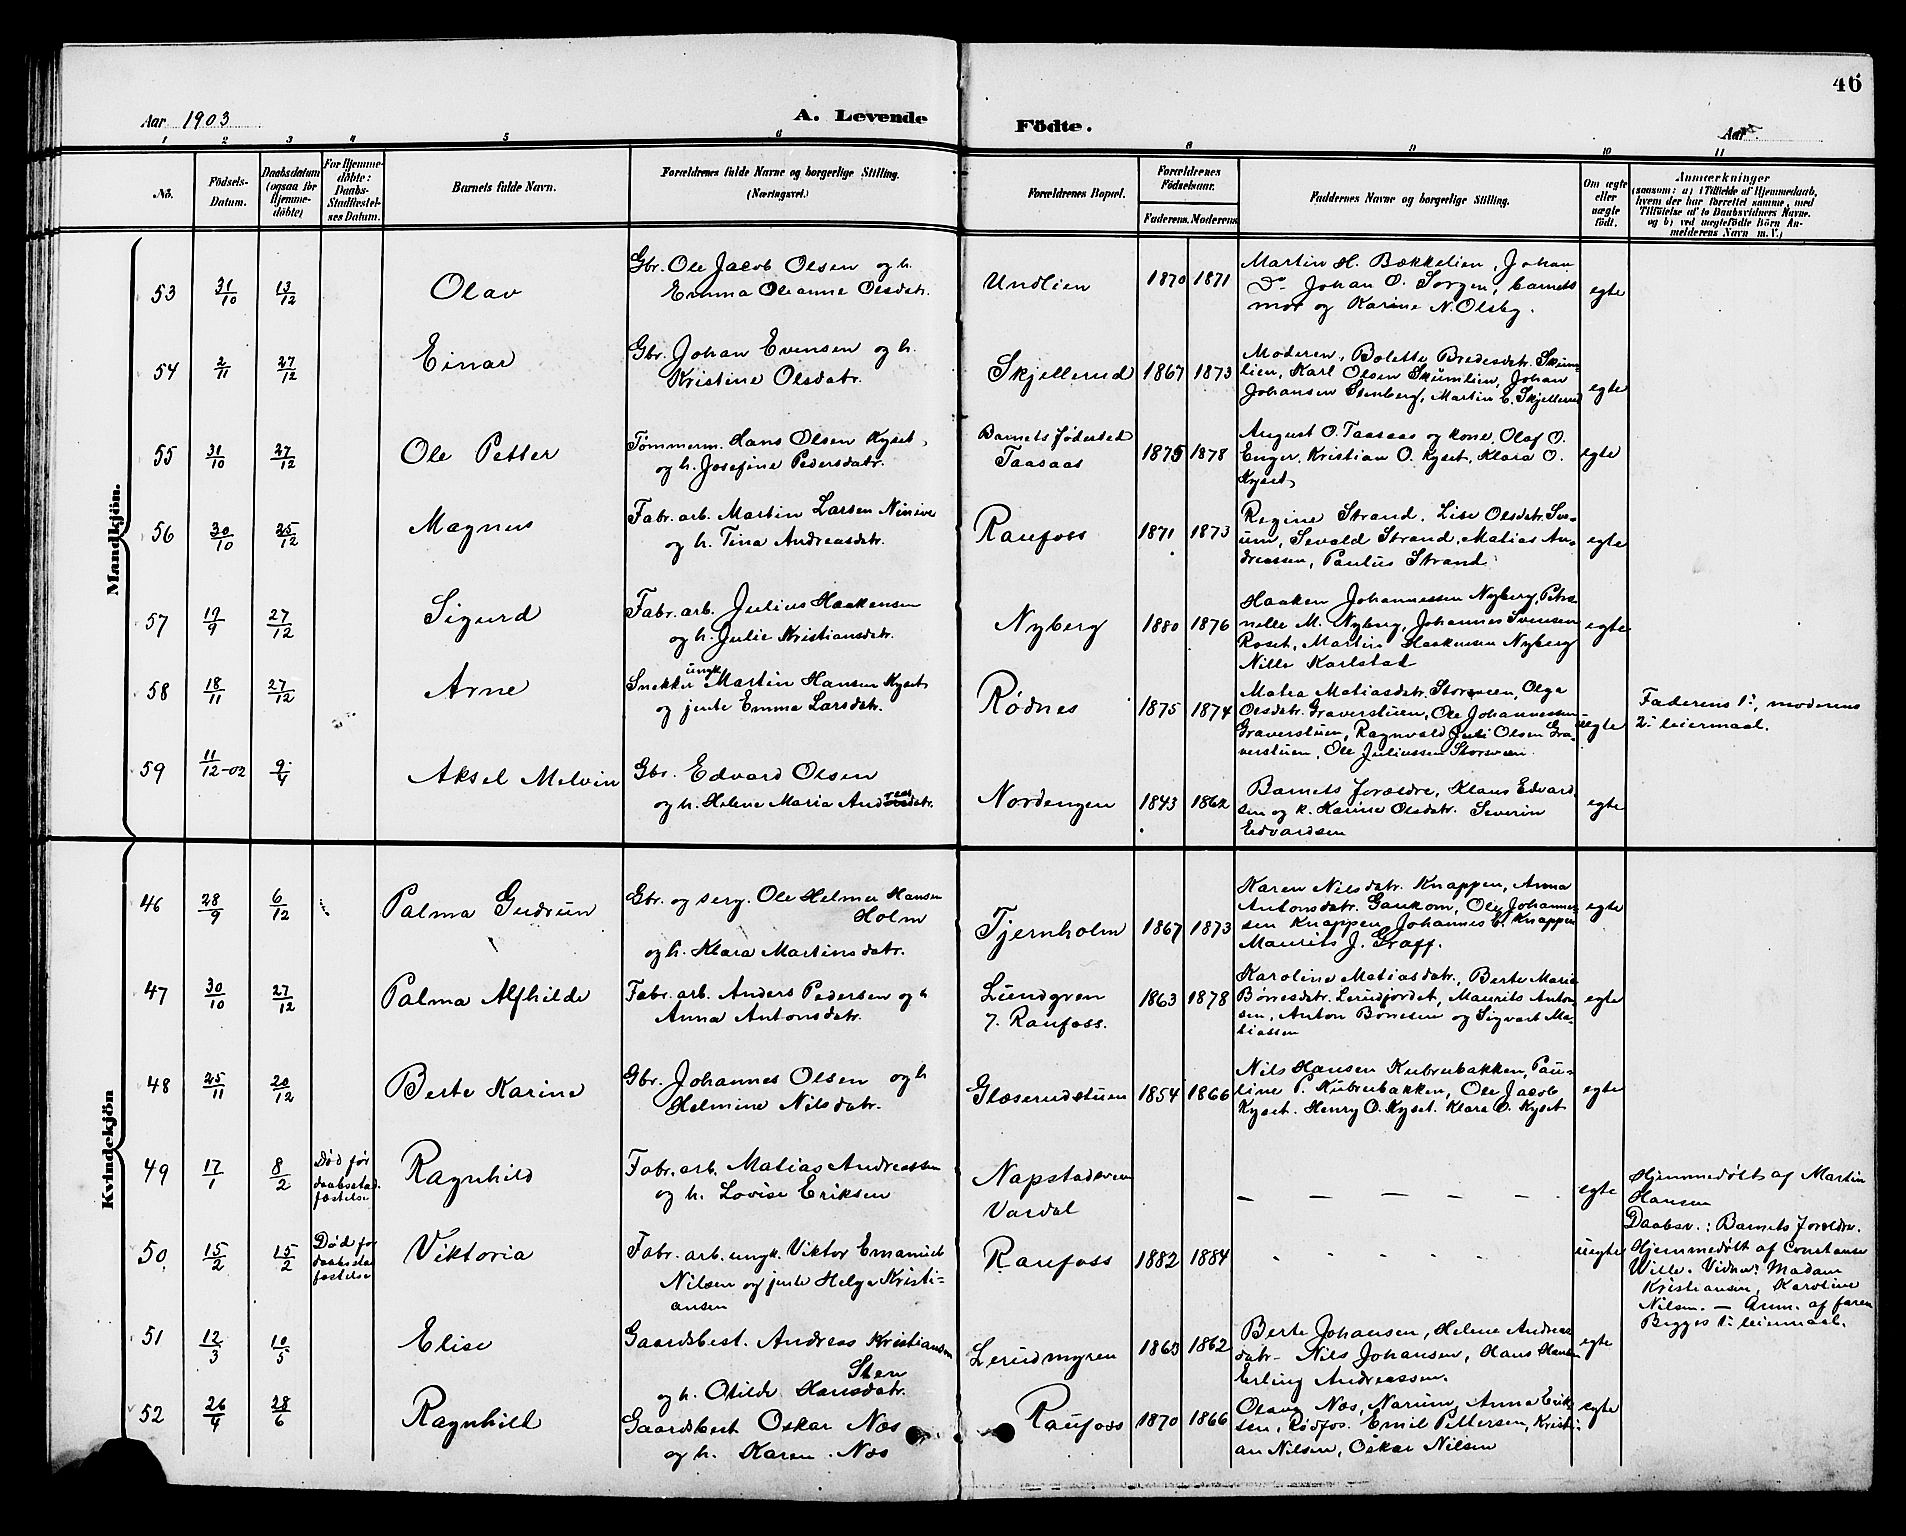 46
Aar 1903
A. Levende
Födte.
Aar
1 2 3 4 5 6 8 9 10 11
No.
Födsels-
Datum.
Daabsdatum
(ogsaa for
Hjemme-
döbte)
For Hjemme-
döbte:
Daabs-
Stadfæstel-
ses Datum.
Barnets fulde Navn.
Forældrenes fulde Navne og borgerlige Stilling.
(Næringsvei.)
Forældrenes Bopæl.
Forældrenes
Födselsaar.
Faderens. Moderens
Faddernes Navne og borgerlige Stilling.
Om ægte
eller
uægte
födt.
Anmærkninger
(saasom: a) i Tilfælde af Hjemmedaab,
hvem der har forrettet samme, med
Tilföielse af to Daabsvidners Navne.
og b) ved uægtefödte Börn An-
melderens Navn m. V.)
Mandkjön.
53 31/10 13/12 Olav
Gbr. Ole Jacob Olsen og h.
Emma Oleanne Olsdatr.
Undlien 1870 1871
Martin H. Bækkelien, Johan
Do Johan O. Sorgen, barnets
mor og Karine N. Olsby.
egte
54 2/11 27/12 Einar
Gbr. Johan Evensen og h.
Kristine Olsdatr.
Skjellerud 1867 1873
Moderen, Bolette Bredesdatr. Skum-
lien, Karl Olsen Skumlien, Johan
Johansen Stenberg, Martin E. Skjellerud
egte
55 31/10 27/12 Ole Petter
Tømmerm. Hans Olsen Kyset
og h. Josefine Pedersdatr.
Barnets fødested
Taasaas
1875 1878
August O. Taasaas og kone, Olaf O.
Enger, Kristian O. Kyset, Klara O.
Kyset
egte
56 30/10 25/12 Magnus
Fabr. arb. Martin Larsen Ninive
og h. Tina Andreasdatr.
Raufoss 1871 1873
Regine Strand, Lise Olsdatr. Sve-
um, Sevald Strand, Matias An-
dreassen, Paulus Strand
egte
57 19/9 27/12 Sigurd
Fabr. arb. Julius Haakensen
og h. Julie Kristiansdatr.
Nyberg 1880 1876
Haaken Johannessen Nyberg, Petro-
nelle M. Nyberg, Johannes Svensen
Roset, Martin Haakensen Nyberg
Nille Karlstat
egte
58 18/11 27/12 Arne
Snekker ungk. Martin Hansen Kyset
og jente Emma Larsdatr.
Rødnes 1875 1874
Matea Matiasdatr. Storsveen, Olga
Olsdatr. Graverstuen, Ole Johannessen
Graverstuen, Ragnvald Juli Olsen Gra-
verstuen, Ole Juliussen Storsveen
uegte
Faderens 1ste, moderens
2det leiermaal.
59 11/12-02 9/4 Aksel Melvin
Gbr. Edvard Olsen
og h. Helene Maria Andreasdatr.
Nordengen 1843 1862
Barnets foreldre, Klaus Edvard-
sen og k. Karine Olsdatr. Severin
Edvardsen
egte
Kvindekjön
46 28/9 6/12 Palma Gudrun
Gbr. og serg. Ole Helmer Hansen
Holm
og h. Klara Martinsdatr.
Tjernholm 1867 1873
Karen Nilsdatr. Knappen, Anna
Antonsdatr. Gaukom, Ole Johannes-
sen Knappen, Johannes E. Knappen
Maurits J. Graff.
egte
47 30/10 27/12 Palma Alfhilde
Fabr. arb. Anders Pedersen og h
Anna Antonsdatr.
Lundgren
7. Raufoss.
1863 1878
Karoline Matiasdatr., Berte Maria
Bonesdatr. Lerudjordet, Maurits Anton-
sen, Anton Bonesen og Sigvart Ma-
tiassen
egte
48 25/11 20/12 Berte Karine
Gbr. Johannes Olsen og h
Helmine Nilsdatr.
Glæserudstuen 1854 1866
Nils Hansen Kubrubakken, Pau-
line P. Kubrubakken, Ole Jacob
Kyset. Henry O. Kyset. Klara O. Kyset
egte
49 17/1 8/2
Død før
daabsstad-
festelse
Ragnhild
Fabr. arb. Matias Andreassen
og h. Lovise Eriksen
Napstadsveen
Vardal
– – – – –
egte
Hjemmedøbt af Martin
Hansen
Daabsv.: Barnets foreldre.
50 15/2 15/2
Død før
daabsstad
festelse
Viktoria
Fabr. arb. ungk. Viktor Emanuel
Nilsen og jente Helga Kristi-
ansen
Raufoss 1882 1884
- - - - -
uegte
Hjemmedøbt af Constanse
Wille. Vidner: Madam
Kristiansen, Karoline
Nilsen. – Anm. af faren
Begges 1ste leiermaal.
51 12/3 10/5 Elise
Gaardsbest. Andreas Kristiansen
Sten
og h. Otilde Hansdatr.
Lerudmyren 1863 1862
Berte Johansen, Helene Andreas-
datr. Nils Johansen, Hans Hansen
Erling Andreassen.
egte
52 26/4 28/6 Ragnhild
Gaardsbest Oskar Næs
og h. Karen Næs
Raufoss 1870 1866
Olava Næs, Narum, Anna Erik-
sen, Rødfos. Emil Pettersen, Kristi-
an Nilsen, Oskar Nilsen
egte